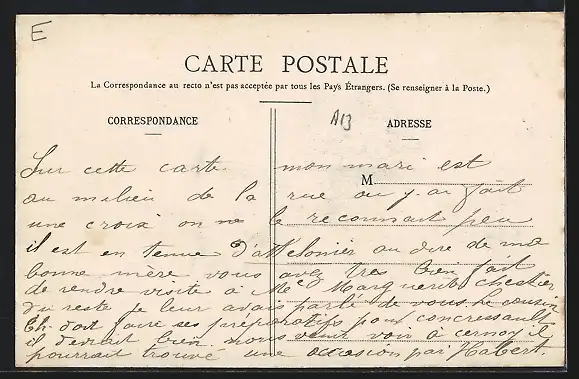 E
CARTE POSTALE
La Correspondance au recto n'est pas acceptée par tous les Pays Étrangers. (Se renseigner à la Poste.)
A13
CORRESPONDANCE
ADRESSE
M
Sur cette carte mon mari est
au milieu de la rue ou j'ai fait
une croix on ne le reconnait peu
il est en tenue d'attelonier au dire de ma
bonne mère vous avez très bien fait
de rendre visite à Marguerite
du reste je leur avais parlé de vous le cousin
Ch. doit faire ses préparatifs pour concressault
il devrait bien nous venir voir à cernoy il
pourrait trouve une occasion par Habert.